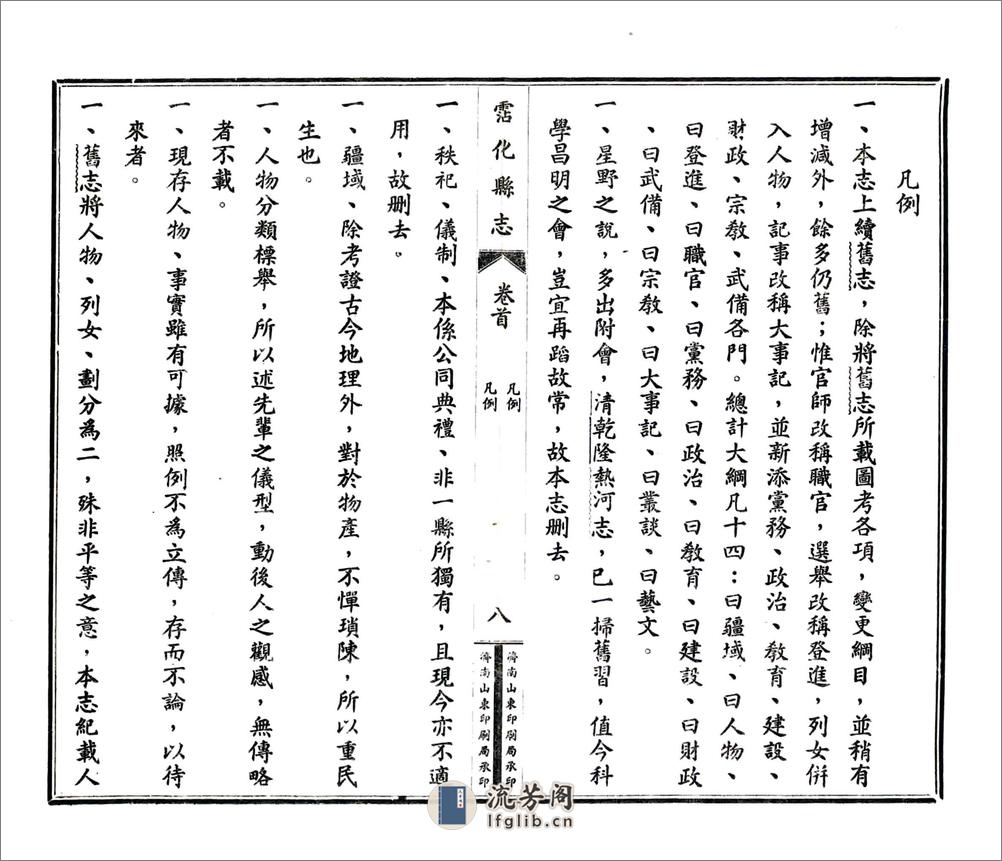 凡例
一、本志上續舊志，除將舊志所載圖考各項，變更綱目，並稍有
增減外，餘多仍舊；惟官師改稱職官，選舉改稱登進，列女併
入人物，記事改稱大事記，並新添黨務、政治、教育、建設、
財政、宗教、武備各門。總計大綱凡十四：曰疆域、曰人物、
曰登進、曰職官、曰黨務、曰政治、曰教育、曰建設、曰財政
、曰武備、曰宗教、曰大事記、曰叢談、曰藝文。
一、星野之說，多出附會，清乾隆熱河志，已一掃舊習，值今科
學昌明之會，豈宜再蹈故常，故本志删去。
霑化縣志
卷首
凡例
凡例
八
濟南山東印刷局承印
濟南山東印刷局承印
一、秩祀、儀制、本係公同典禮、非一縣所獨有，且現今亦不適
用，故删去。
一、疆域、除考證古今地理外，對於物產，不憚瑣陳，所以重民
生也。
一、人物分類標舉，所以述先輩之儀型，動後人之觀感，無傳略
者不載。
一、現存人物、事實雖有可據，照例不為立傳，存而不論，以待
來者。
一、舊志將人物、列女、劃分為二，殊非平等之意，本志紀載人
流芳阁
lfglib.cn